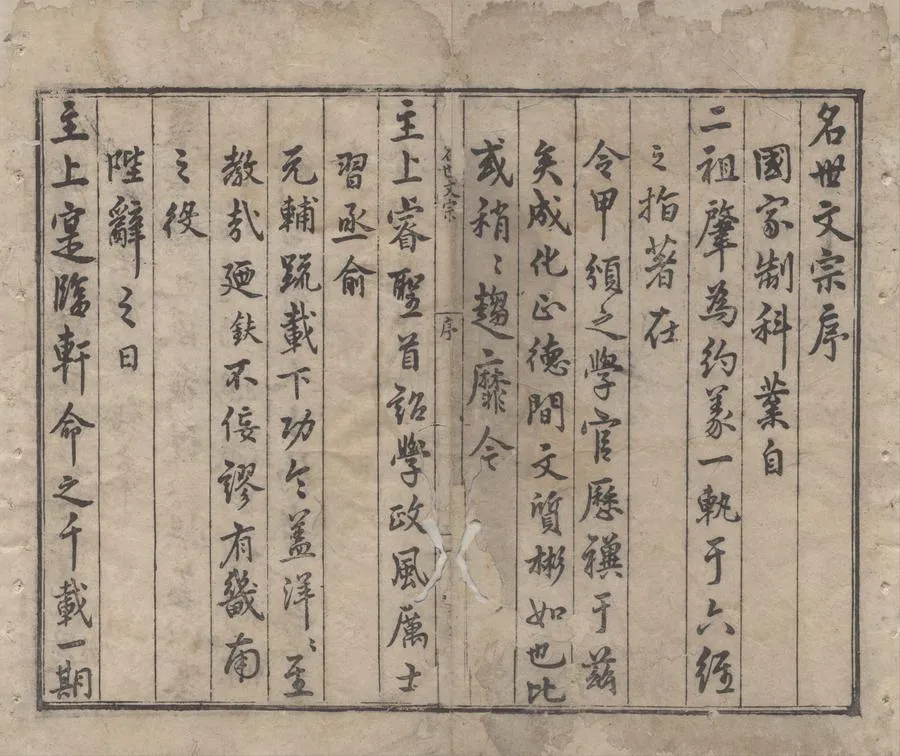 名世文宗序
國家制科業自
二祖肇為約一軌于六經
之指著在
令甲頒之學官歷禩于茲
矣成化正德間文質彬如也比
或稍〻趨靡今
名世文宗
序
主上睿聖首詔學政風厲士
習亟俞
元輔疏載下功令蓋洋〻至
教哉廼鈇不佞謬有畿南
之役
陛辭之日
主上寔臨軒命之千載一期